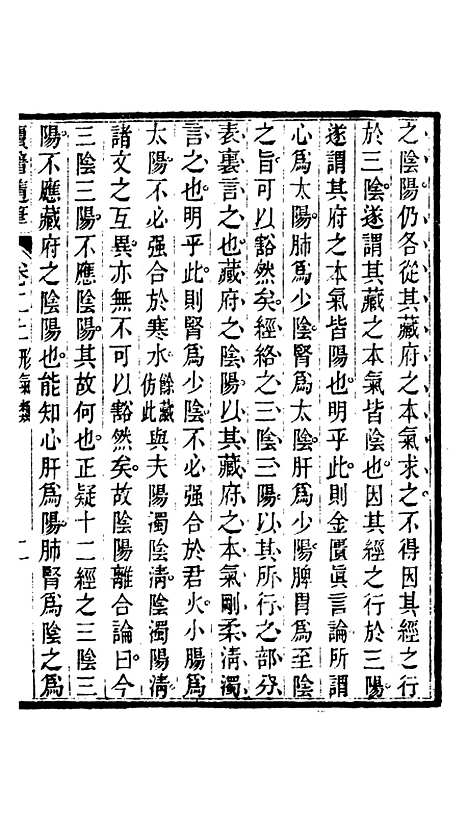 之陰陽仍各從其藏府之本氣求之不得因其經之行
於三陰遂謂其藏之本氣皆陰也因其經之行於三陽
遂謂其府之本氣皆陽也明乎此則金匱眞言論所謂
心爲太陽肺爲少陰腎爲太陰肝爲少陽脾胃爲至陰
之旨可以豁然矣經絡之三陰三陽以其所行之部分
表裏言之也藏府之陰陽以其藏府之本氣剛柔清濁
言之也明乎此則腎爲少陰不必强合於君火小腸爲
太陽不必强合於寒水餘藏仿此與夫陽濁陰清陰濁陽清
諸文之互異亦無不可以豁然矣故陰陽離合論曰今
三陰三陽不應陰陽其故何也正疑十二經之三陰三
陽不應藏府之陰陽也能知心肝爲陽肺腎爲陰之爲
讀醫隨筆 卷二上形氣類 二